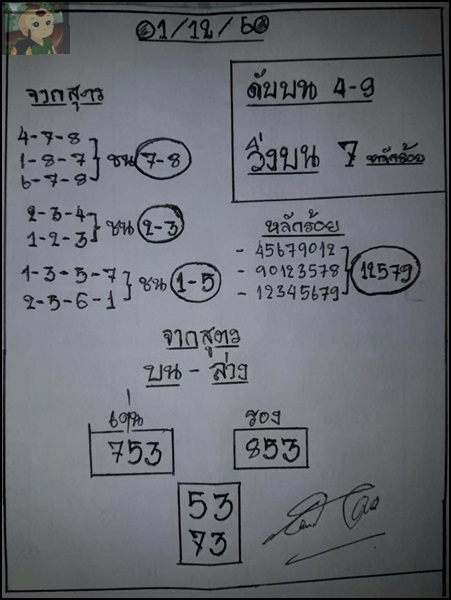 01/12/60
จากสูตร
4-7-8
1-8-7 ชน 7-8
6-7-8
2-3-4
1-2-3 ชน 2-3
1-3-5-7
2-5-6-1 ชน 1-5
ดับบน 4-9
วิ่งบน 7 หลักร้อย
หลักร้อย
- 45679012
- 90123578 12579
- 12345679
จากสูตร
บน - ล่าง
เด่น
753
รอง
853
53
73